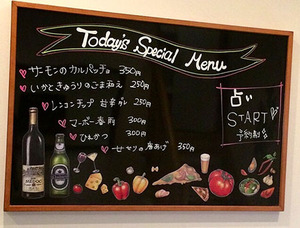 Today's Special Menu
サーモンのカルパッチョ 350円
いかときゅうりのごま和え 250円
レンコンチップ 甘辛ダレ 250円
マーボー春雨 300円
ひれカツ 300円
の唐あげ 350円
占い
START
予約制
MEDOC